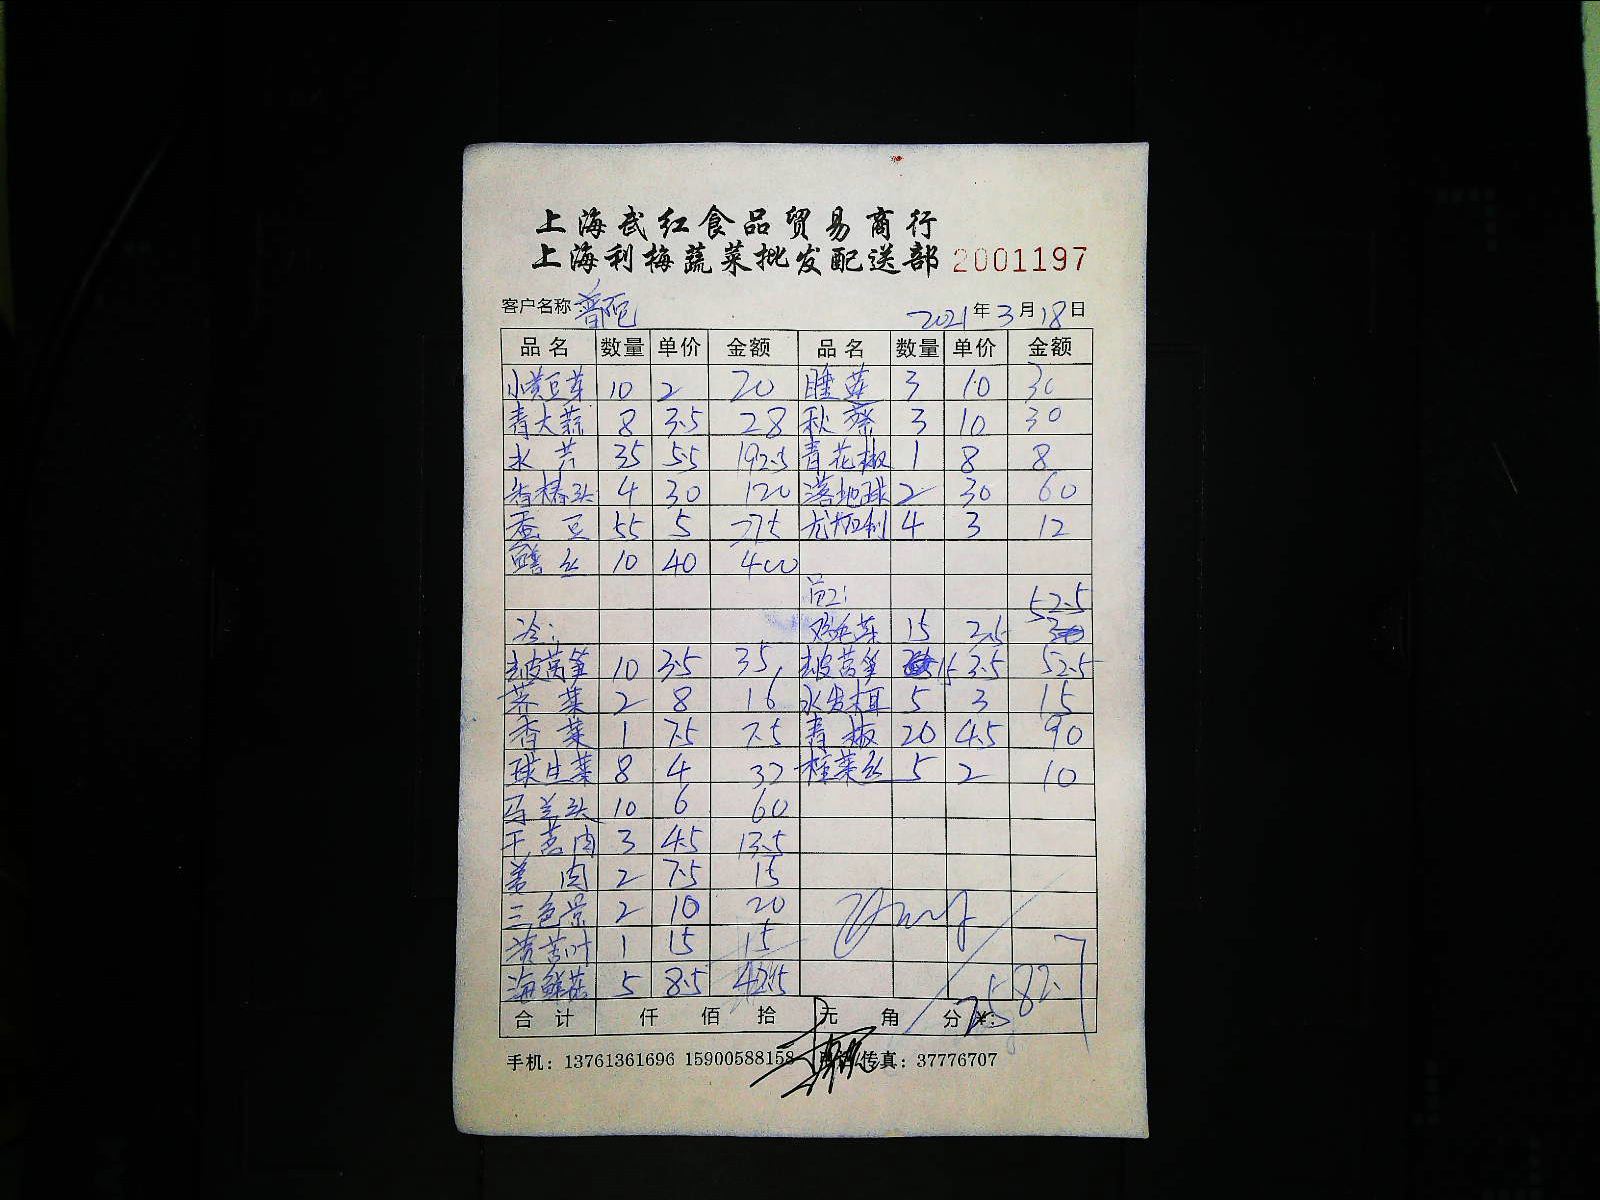 上海武红食品贸易商行
上海利梅蔬菜批发配送部 2001197
客户名称 2021年3月18日
品名 数量 单价 金额 品名 数量 单价 金额
小黄豆芽 10 2 20 睡莲 3 10 30
青大蒜 8 3.5 28 秋葵 3 10 30
水芹 35 5.5 192.5 青花椒 1 8 8
香椿头 4 30 120 落地球 2 30 60
蚕豆 55 5 275 尤加利 4 3 12
鳝丝 10 40 400
52.5
冷: 鸡毛菜 15 2.5
去皮莴笋 10 3.5 35 去皮莴笋 15 3.5 52.5
荠菜 2 8 16 水发木耳 5 3 15
香菜 1 7.5 7.5 青椒 20 4.5 90
球生菜 8 4 32 榨菜丝 5 2 10
马兰头 10 6 60
干葱肉 3 4.5 13.5
姜肉 2 7.5 15
三色堇 2 10 20
黄苦叶 1 15 15
海鲜菇 5 8.5 42.5
合计 仟 佰 拾 元 角 分 ¥:
手机: 13761361696 15900588158 传真: 37776707